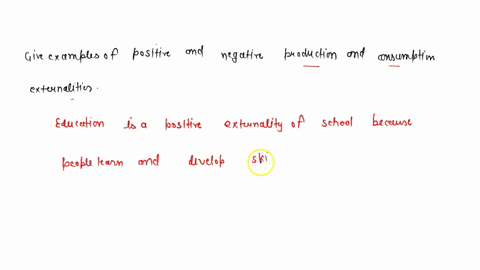 Give examples of positive and negative production and consumption
externalities.
Education is a positive externality of school because
people learn and develop ski